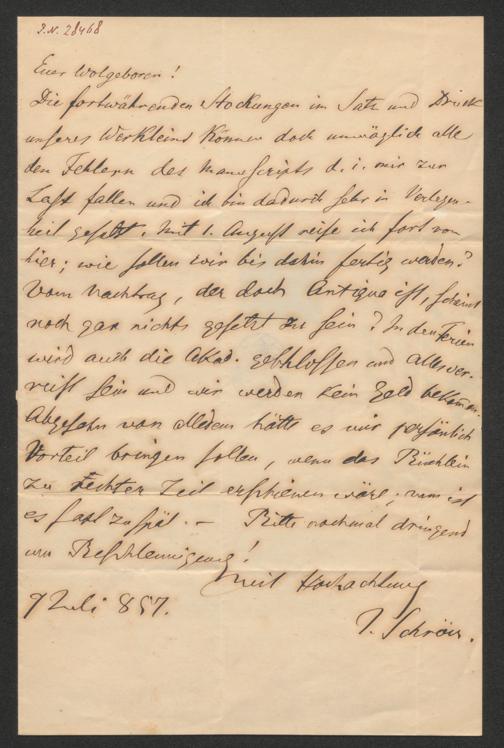 J.N. 28468
Euer Wolgeboren!
Die fortwährenden Stockungen im Satz und Druck
unseres Werkleins können doch unmöglich alle
den Fehlern des Manuscripts d. i. mir zur
Last fallen und ich bin dadurch sehr in Verlegen-
heit gesetzt. Mit 1. August reise ich fort von
hier; wie sollen wir bis dahin fertig werden?
Vom Nachtrag, der doch Antiqua ist, scheint
noch gar nichts gesetzt zu sein? In den Ferien
wird auch die Akad. geschlossen und alles ver-
reist sein und wir werden kein Geld bekommen.
Abgesehn von alledem hätte es mir persönlich
Vorteil bringen sollen, wenn das Büchlein
zu rechter Zeit erschienen wäre; nun ist
es fast zu spät. — Bitte nochmal dringend
um Beschleunigung!
Mit Hochachtung
9 Juli 857.
J. Schröer.